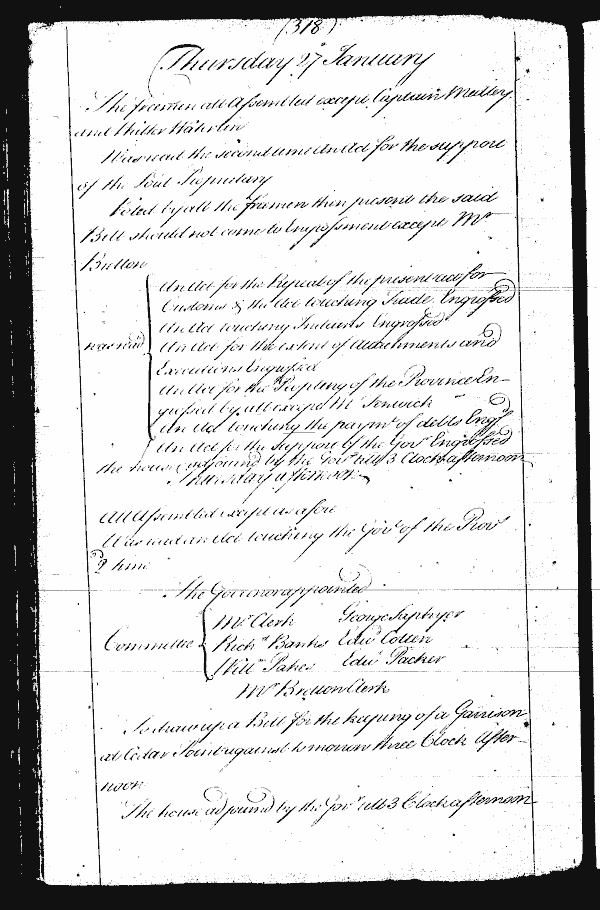 (318)
Thursday 27 January
The freemen all assembled except Captain
and
Was read the second time An Act for the support
of the Lord Proprietary
Voted by all the freemen then present the said
Bill should not come to Engrossment except Mr
Bretton
An Act for the Repeal of the present act for
Customs & the Act touching Trade Engrossed
An Act touching Engrossed
was read An Act for the extent of Attachments and
Executions Engrossed
An Act for the Peopling of the Province En-
grossed by all except Mr Fenwick
An Act touching the paymt of debts Engrd
An Act for the support of the Govr Engrossed
the house adjournd by the Govr till 3 Clock afternoon
Thursday afternoon
All Assembled except as afore
Was read an Act touching the Govt of the Provc
time
The Governor appointed
Mr Clerk George Saphyer
Committee Richd Banks Edwd Cotten
Willm Edwd Packer
Mr Bretton Clerk
To draw up a Bill for the keeping of a Garrison
at Cedar Point against to morrow three Clock After-
noon
The house adjournd by the Govr till 3 Clock afternoon